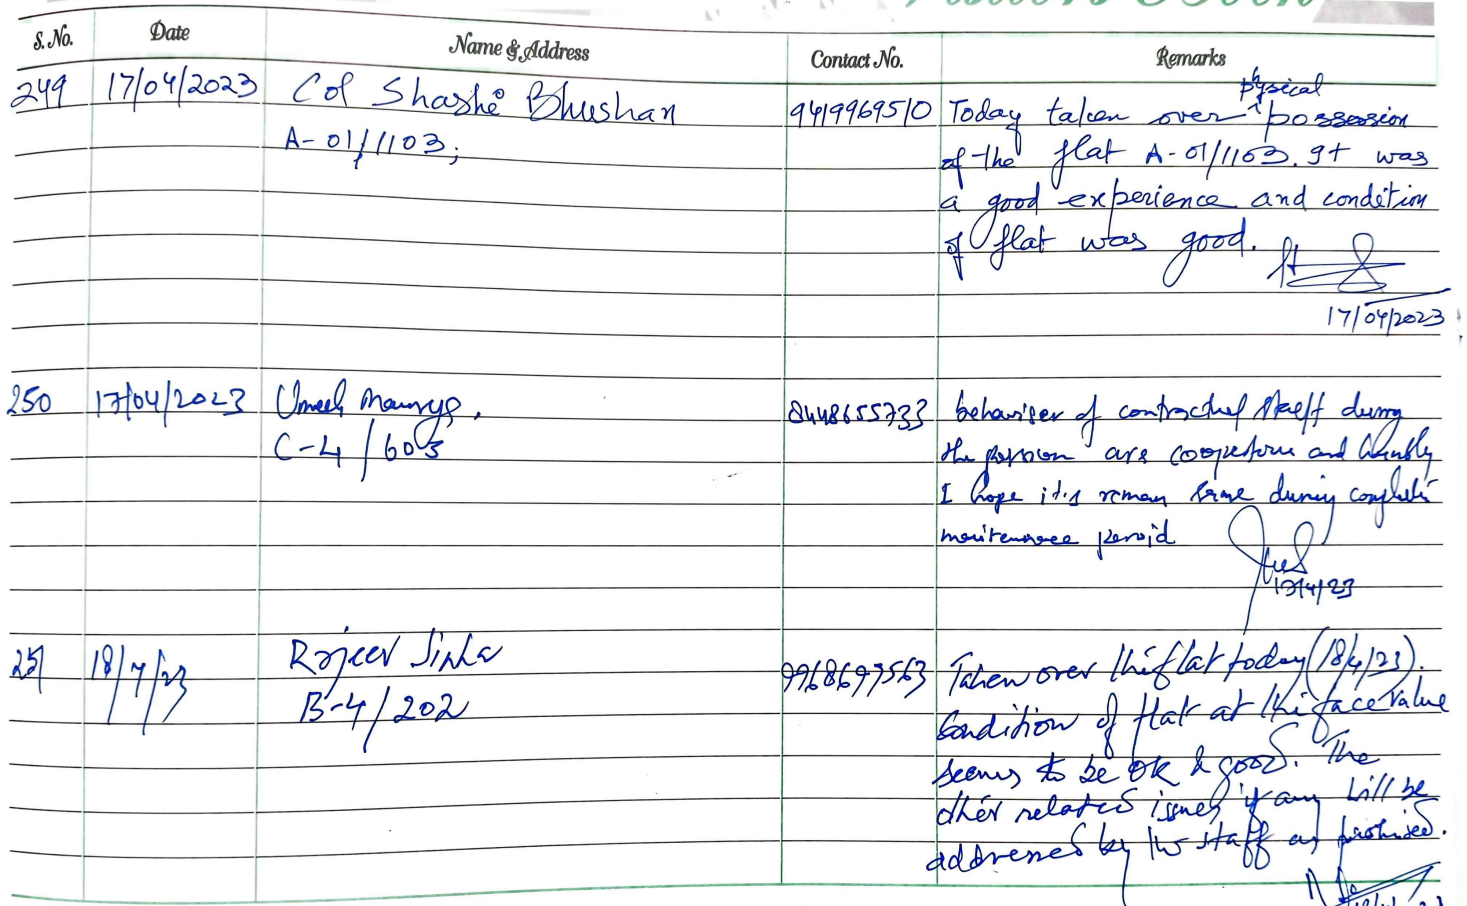 Visitors Book
S. No. Date Name & Address Contact No. Remarks
249 17/04/2023 Col Shashi Bhushan 9419969510 Today taken over physical possession
A-01/1103; of the flat A-01/1103. It was
a good experience and condition
of flat was good.
17/04/2023
250 17/04/2023 Umesh Maurya, 8448655733 behaviser of contractuel staeff during
C-4/603 the are cooperative and humbly
I hope it's reman same during complete
maitenance peroid
17/4/23
251 18/4/23 Rajeev Sinha 9968697563 Taken over the flat today (18/4/23).
B-4/202 Condition of flat at the face value
seems to be OK & good. The
other related issues if any will be
addressed by the staff as promised.